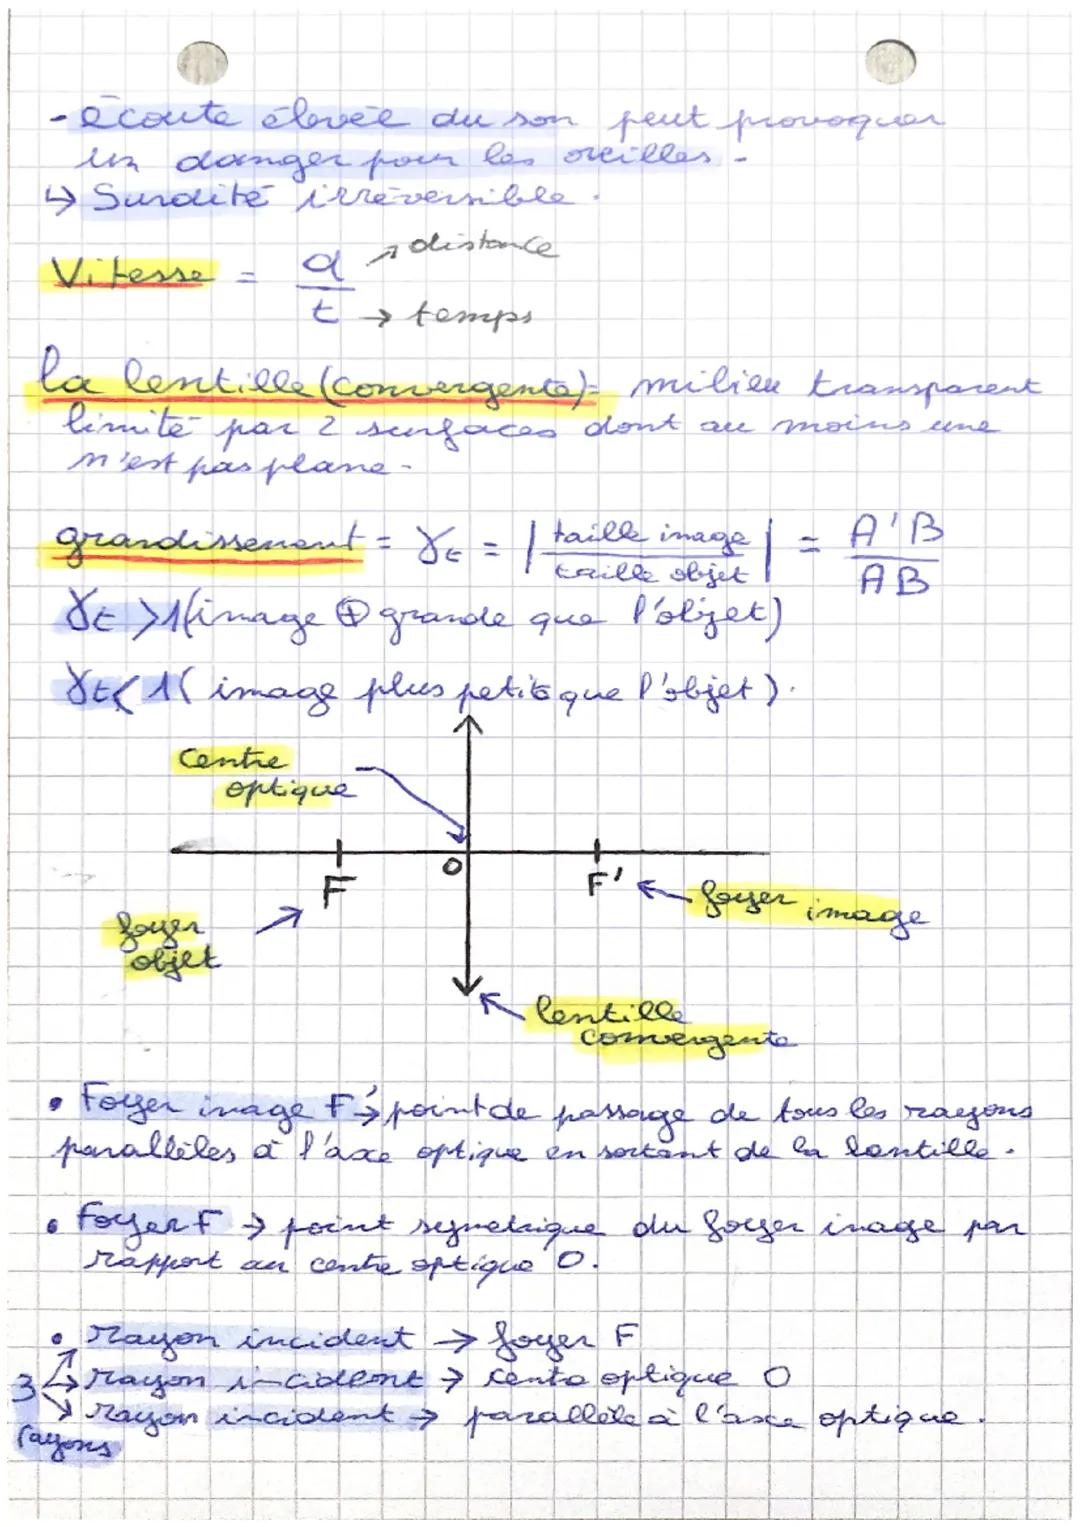 - écoute élevée du son peut provoquer
un danger pour les oreilles.
↳ Surdité irréversible.
Vitesse = d/t
→ distance
→ temps
la lentille (convergente) = milieu transparent
limité par 2 surfaces dont au moins une
n'est pas plane.
grandissement = γt = | taille image / taille objet | = A'B / AB
γt > 1 (image ⊕ grande que l'objet)
γt < 1 ( image plus petite que l'objet ).
Centre
optique
O
F
F'
foyer image
foyer
objet
lentille
convergente
• Foyer image F' → point de passage de tous les rayons
parallèles à l'axe optique en sortant de la lentille.
• Foyer F → point symetrique du foyer image par
rapport au centre optique O.
• rayon incident → foyer F
3 ↳ rayon incident → centre optique O
↘ rayon incident → parallèle à l'axe optique.
rayons